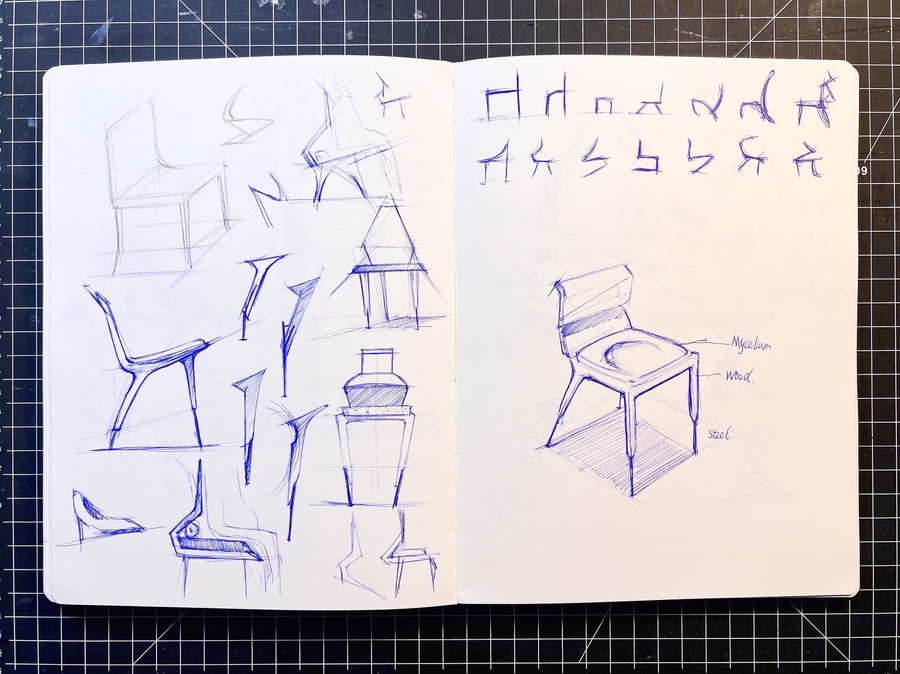 Mycelium
Wood.
Steel